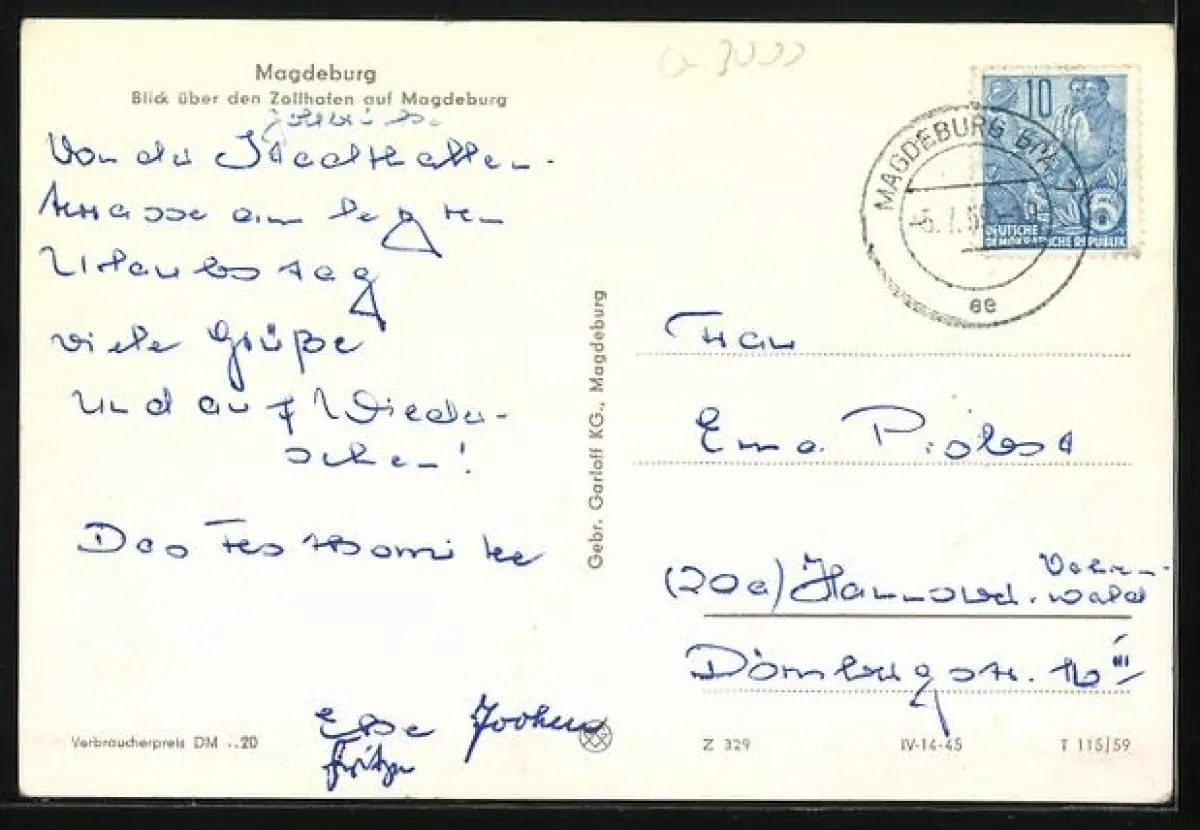 Magdeburg
Blick über den Zollhafen auf Magdeburg
Von der Stadthallen-
terrasse am letzten
Urlaubstag
viele Grüße
und auf Wieder-
sehen!
Das Festkomitee
Else Jochen
Fritz
Verbraucherpreis DM -.20
Gebr. Garloff KG., Magdeburg
10
DEUTSCHE
DEMOKRATISCHE REPUBLIK
5
MAGDEBURG BPA
ee
Frau
Erna
(20a) Hannover.
wald
Dörnbergstr. 16 III
Z 329
IV-14-45
T 115/59